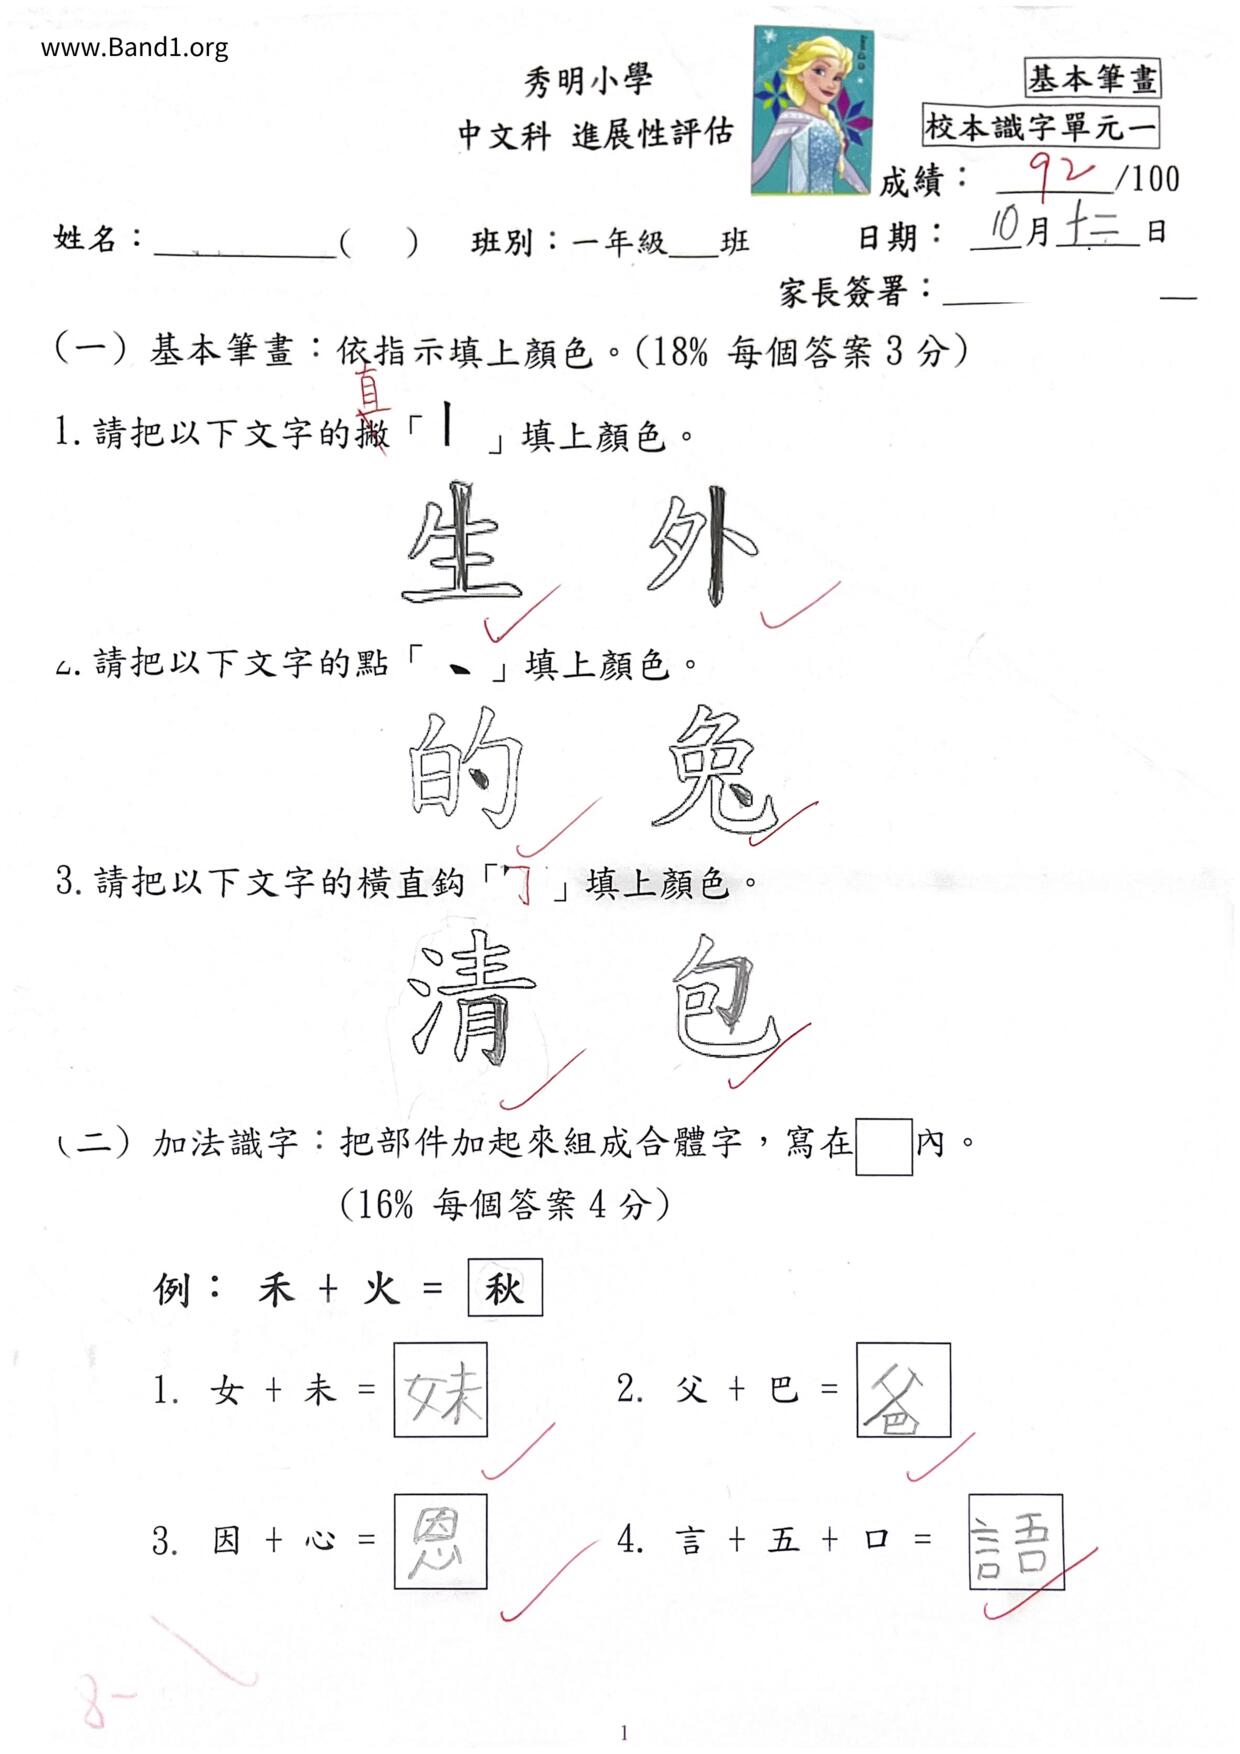 www.Band1.org
秀明小學
基本筆畫
中文科 進展性評估
校本識字單元一
成績： 92 /100
姓名：__________( ) 班別：一年級___班 日期： 10月十二日
家長簽署：
(一) 基本筆畫：依指示填上顏色。(18% 每個答案3分)
直
1.請把以下文字的撇「丨」填上顏色。
生 外
2.請把以下文字的點「丶」填上顏色。
的 兔
3.請把以下文字的橫直鈎「𠃌」填上顏色。
清 包
(二) 加法識字：把部件加起來組成合體字，寫在□內。
(16% 每個答案4分)
例： 禾 + 火 = 秋
1. 女 + 未 = 妹 2. 父 + 巴 = 爸
3. 因 + 心 = 恩 4. 言 + 五 + 口 = 語
8-
1